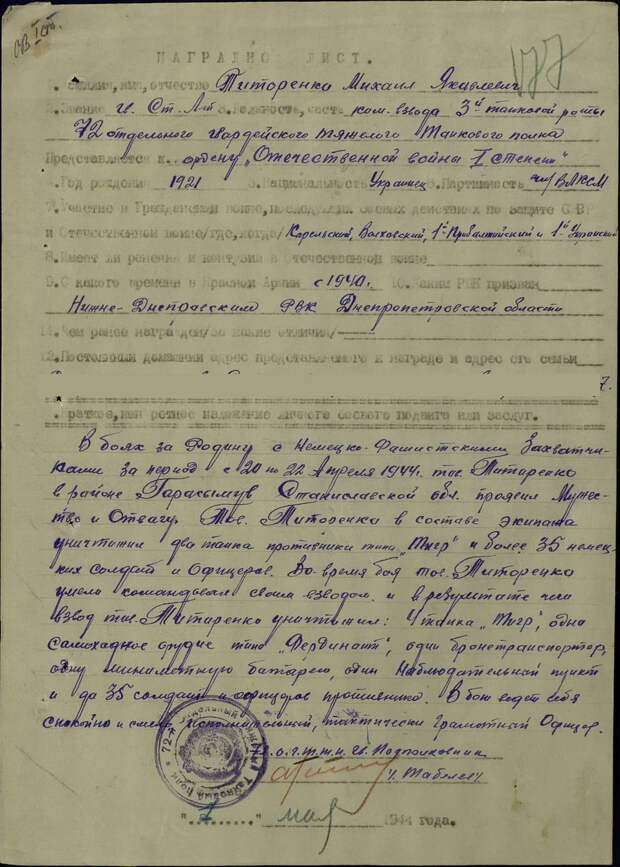 ОВ I ст.
177
НАГРАДНОЙ ЛИСТ.
1. Фамилия, имя, отчество Титоренко Михаил Яковлевич
2. Звание гв. Ст. Л-т 3. Должность, часть ком. взвода 3й танковой роты
72 отдельного гвардейского тяжелого Танкового полка
Представляется к ордену "Отечественной войны I степени"
4. Год рождения 1921 5. Национальность Украинец 6. Партийность чл. ВЛКСМ
7. Участие в Гражданской войне, последующих боевых действиях по Защите
и Отечественной войне/где, когда/ Карельский, Волховский, 1й-Прибалтийский и 1й Украинский
8. Имеет ли ранения и контузии в Отечественной войне
9. С какого времени в Красной Армии с 1940г. 10. Каким РВК призван
Нижне-Днепровским РВК Днепропетровской области
11. Чем ранее награжден/за какие отличия/
12. Постоянный домашний адрес представляемого к награде и адрес его семьи
7.
Краткое, конкретное изложение личного боевого подвига или заслуг.
В боях за Родину с Немецко-Фашистскими Захватчи-
ками за период с 20 по 22 Апреля 1944г. тов. Титаренко
в районе Гарасымув Станиславской обл. проявил Муже-
ство и Отвагу. Тов. Титоренко в составе экипажа
уничтожил два танка противника типа "Тигр" и более 35 немец-
ких солдат и Офицеров. Во-время боя тов. Титоренко
умело командовал своим взводом, и в результате чего
взвод тов. Титаренко уничтожил: 4 танка "Тигр", одно
самоходное орудие типа "Фердинант", один бронетранспортер,
одну минометную батарею, один Наблюдательный пункт
и до 35 солдат и офицеров противника. В бою ведет себя
спокойно и смело исполнительный, тактически грамотный Офицер.
о.г.т.т.п. гв. Подполковник
72-й Отдельный Танковый Полк
"7" мая 1944 года.